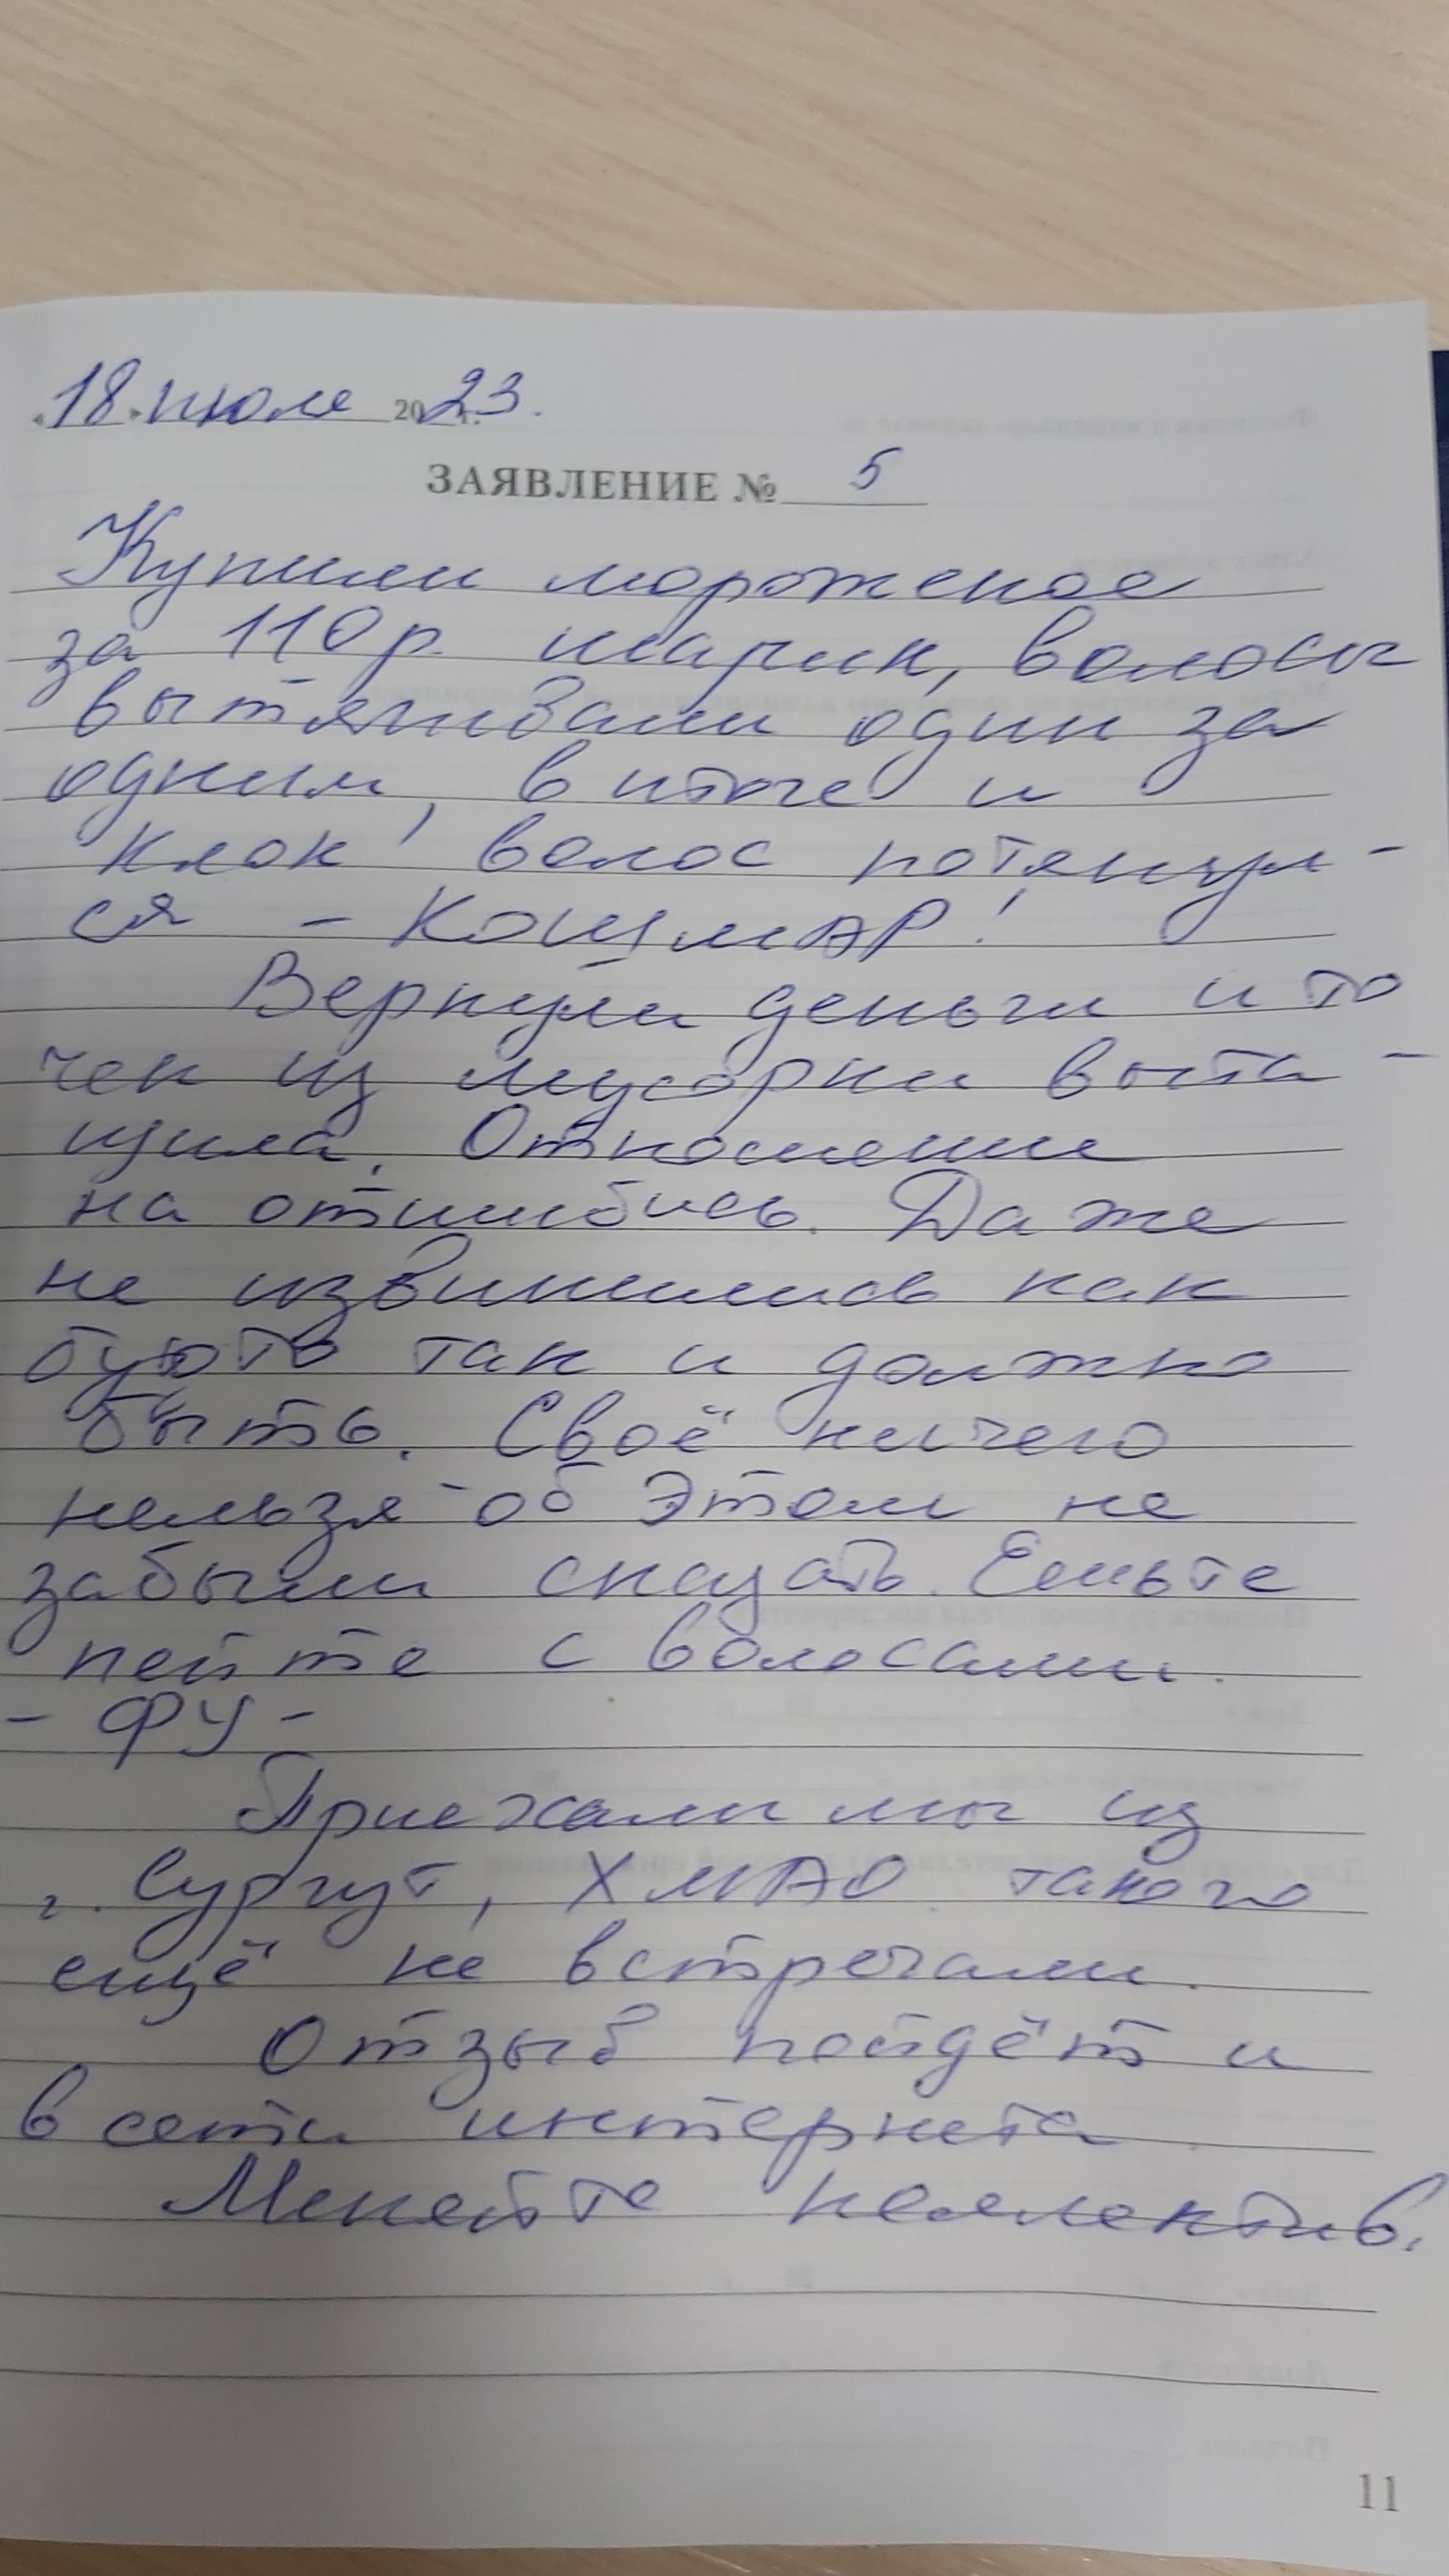 «18» июля 2023г.
ЗАЯВЛЕНИЕ № 5
Купили мороженое
за 110р. шарик, волосы
вытягивали один за
одним, в итоге и
клок волос потянул-
ся - КошмАР!
Вернули деньги и то
чек из мусорки выта-
щила. Отношение
на отшибись. Даже
не извинились как
будто так и должно
быть. Своё ничего
нельзя - об этом не
забыли сказать. Ешьте
пейте с волосами.
- ФУ -
Приехали мы из
г. Сургут, ХМАО такого
ещё не встречали.
Отзыв пойдёт и
в сети интернета.
Меняйте коллектив.
11